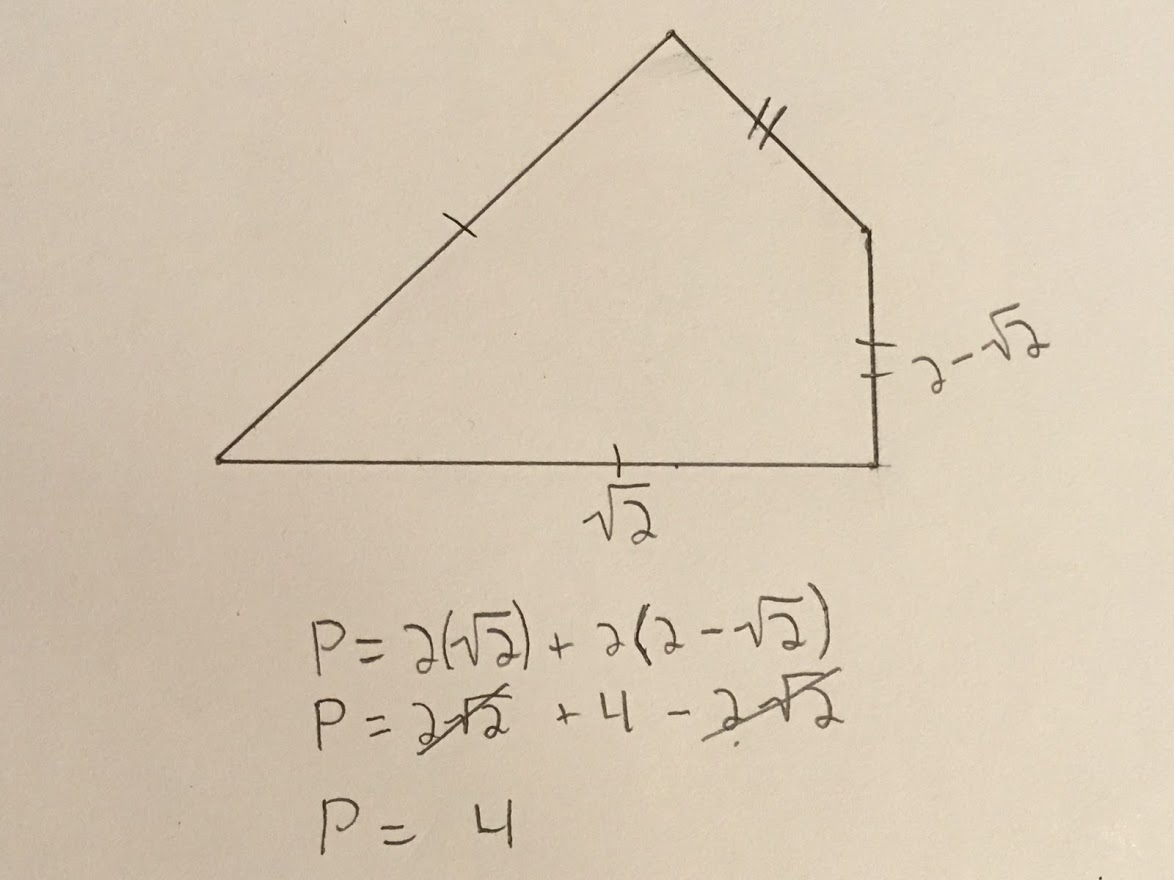 2 - √2
√2
P = 2(√2) + 2(2 - √2)
P = 2√2 + 4 - 2√2
P = 4